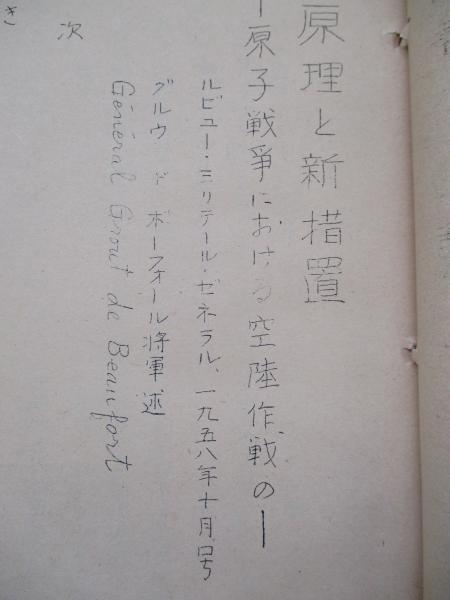 原理と新措置
―原子戦爭における空陸作戦の―
ルビュー・ミリテール・ゼネラル、一九五八年十月号
グルウ ド ボーフォール將軍述
Général Grout de Beaufort
次
き)